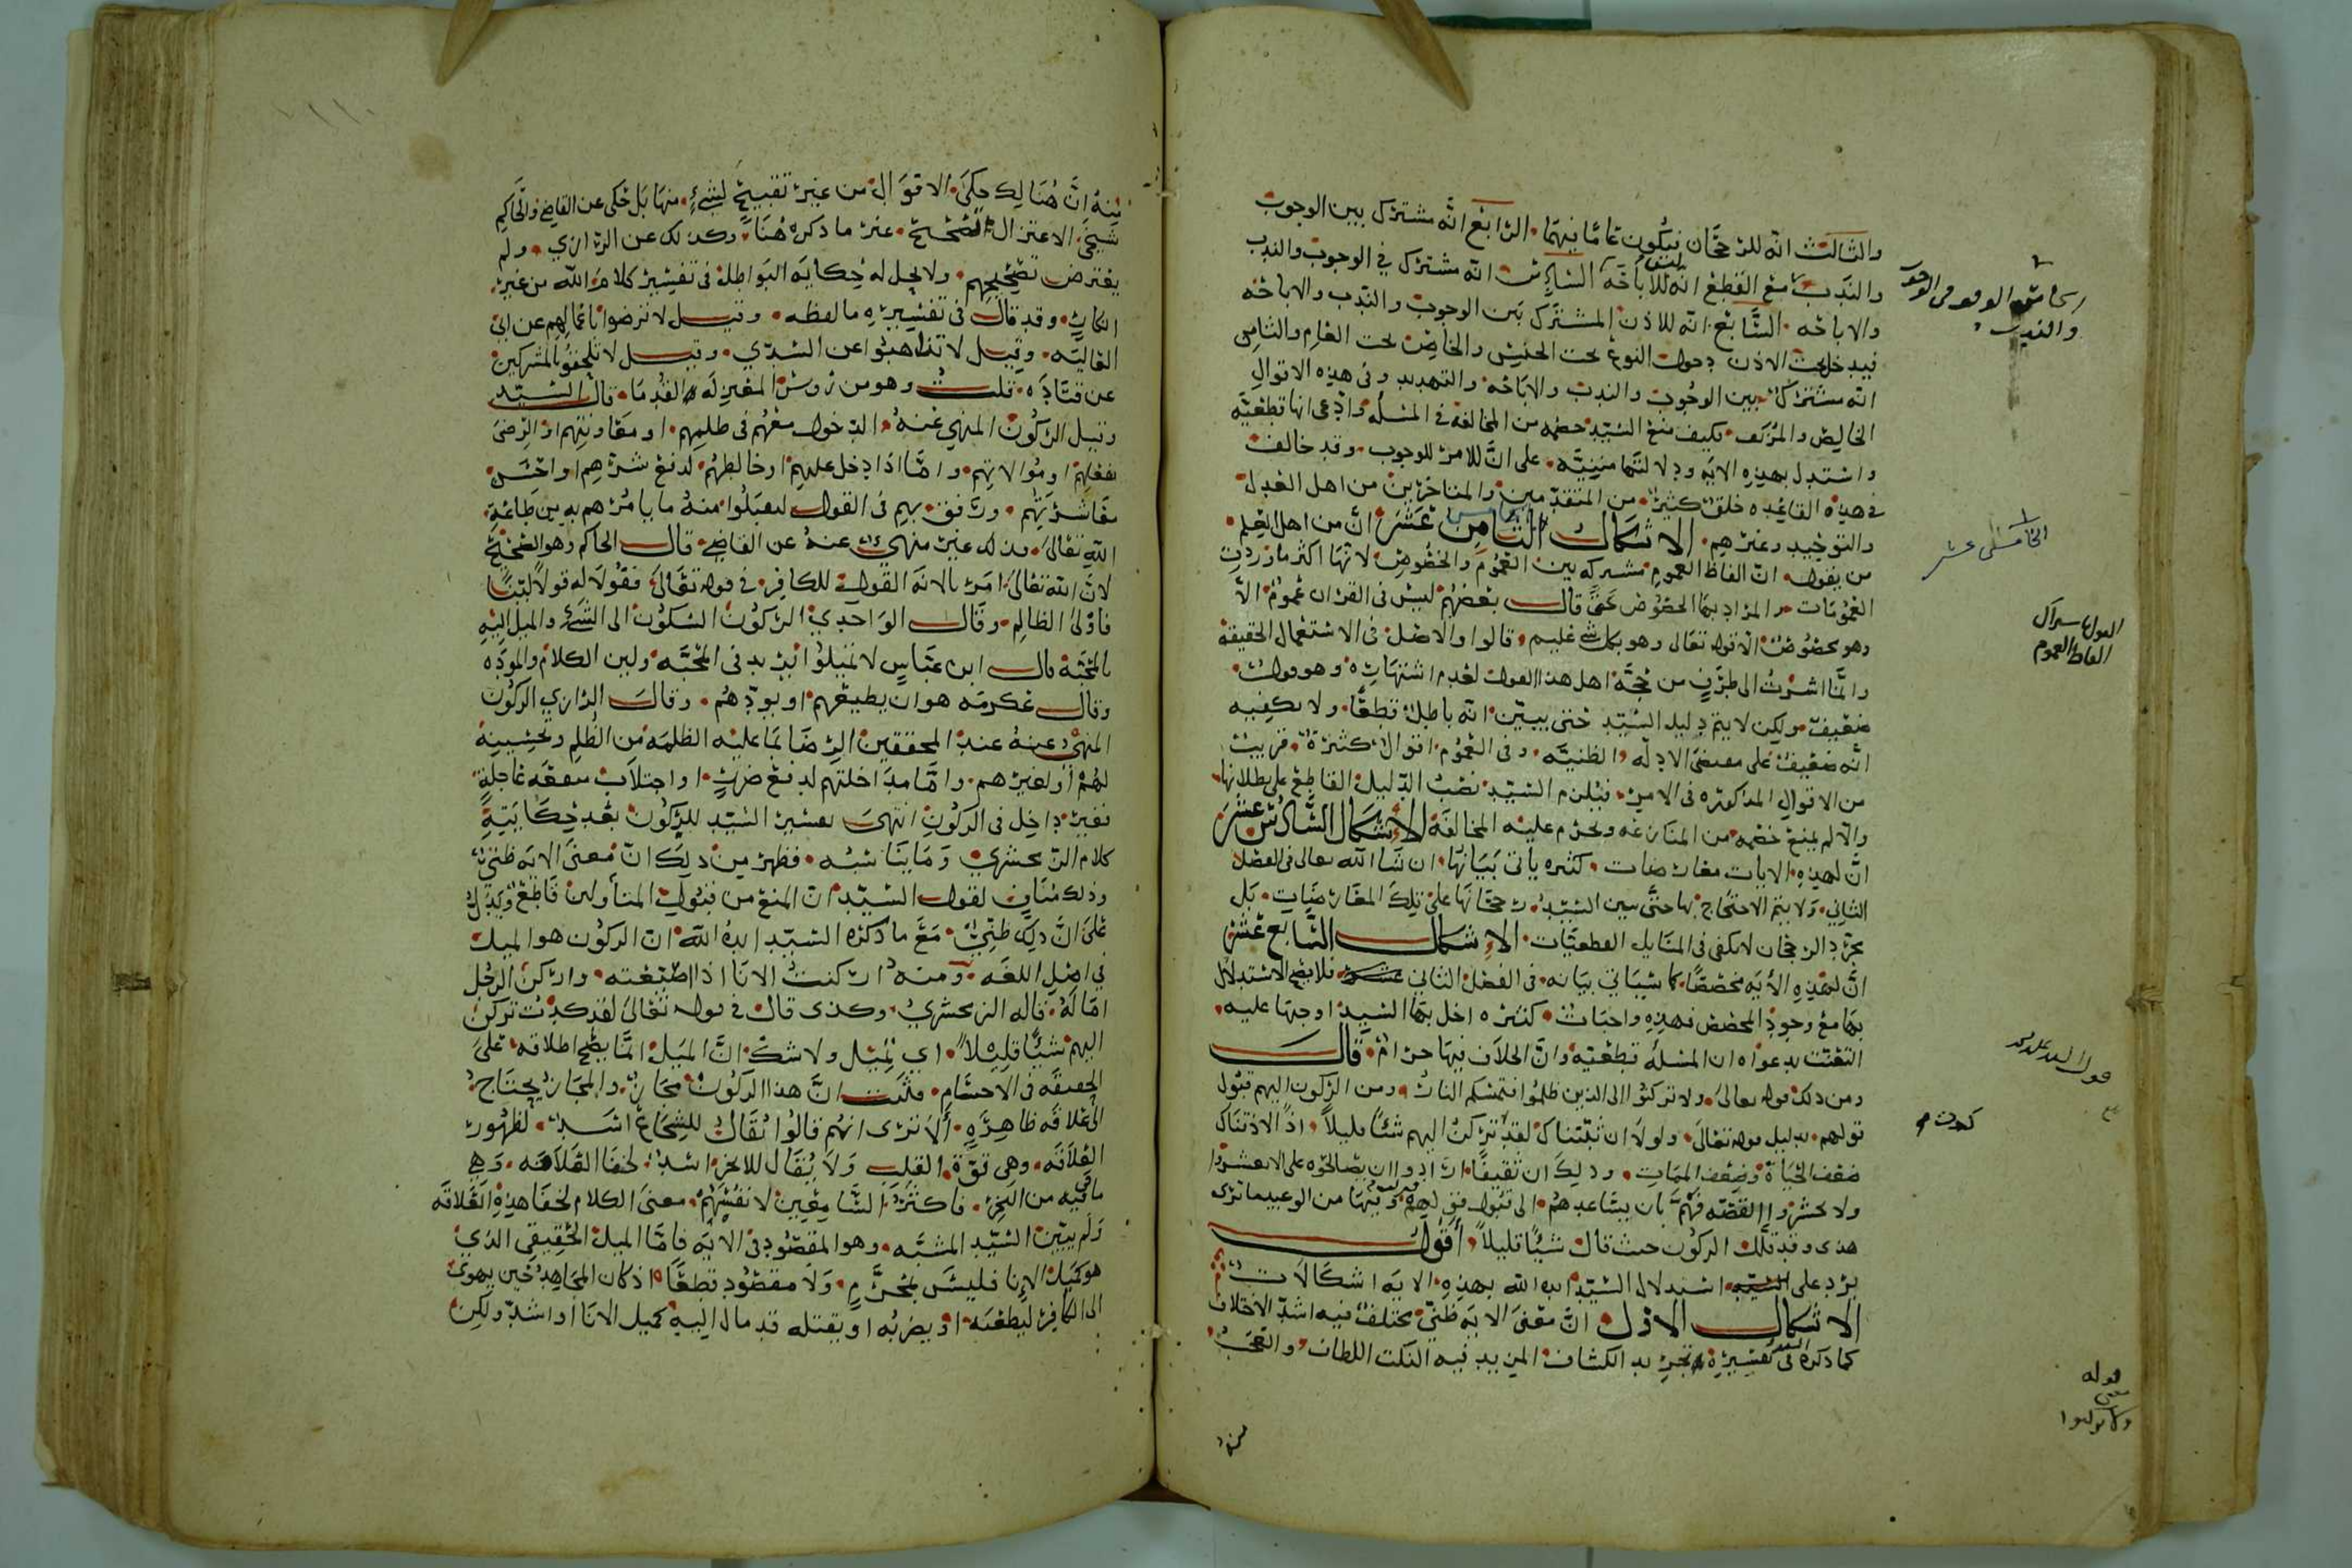 والثالث انه للرجحان فيكون عامًا فيهما الرابع انه مشترك بين الوجوب
والندب مع القطع انه ليس للاباحة السادس انه مشترك في الوجوب والندب
والاباحه السابع انه للاذن المشترك بين الوجوب والندب والاباحه
فيدخل تحت الاذن دخول النوع تحت الجنس والخاص تحت العام والثامن
انه مشترك بين الوجوب والندب والاباحه والتهديد وفي هذه الاقوال
الخالص والمزيف فكيف منع السيد خصمه من المخالفة في المسئلة وادعى انها قطعيه
واستدل بهذه الايه ودلالتها مبنيه على ان الامر للوجوب وقد خالف
في هذه القاعده خلق كثير من المتقدمين والمتاخرين من اهل العدل
والتوحيد وغيرهم الاشكال الثامن عشر ان من اهل العلم
من يقول ان الفاظ العموم مشتركه بين العموم والخصوص لانها اكثر ما وردت
العمومات والمراد بها الخصوص حتى قال بعضهم ليس في القران عموم الا
وهو مخصوص الا قوله تعالى وهو بكل شي عليم قالوا والاصل في الاستعمال الحقيقة
وانما اشرت الى طرف من حجة اهل هذا القول لعدم اشتهاره وهو قول
ضعيف ولكن لا يتم دليل السيد حتى يبين انه باطل قطعًا ولا يكفيه
انه ضعيف على مقتضى الادله الظنيه وفي العموم اقوال كثيرة قريب
من الاقوال المذكوره في الامر فيلزم السيد نصب الدليل القاطع على بطلانها
والا لم يمنع خصمه من المنازعه ويحرم عليه المخالفة الاشكال السادس عشر
ان لهذه الايات معارضات كثيره ياتي بيانها ان شا الله تعالى في الفصل
الثاني ولا يتم الاحتجاج بها حتى يبين السيد رجحانها على تلك المعارضات بل
مجرد الرجحان لا يكفي في المسايل القطعيات الاشكال السابع عشر
ان لهذه الايه مخصصًا كما سياتي بيانه في الفصل الثاني فلا يصح الاستدلال
بها مع وجود المخصص فهذه واجبات كثيره اخل بها السيد اوجبها عليه
التعنت بدعواه ان المسئله قطعية وان الخلاف فيها حرام قال
ومن ذلك قوله تعالى ولا تركنوا الى الذين ظلموا فتمسكم النار ومن الركون اليهم قبول
قولهم بدليل قوله تعالى ولولا ان ثبتناك لقد تركن اليهم شئًا قليلاً اذًا لاذقناك
ضعف الحياة وضعف الممات وذلك ان ثقيفًا ارادوا ان يصالحوه على الا يعشروا
ولا يحشروا القصه فهم بان يساعدهم الى قبول قولهم وفيها من الوعيد ما ترى
هذى وقد قلل الركون حيث قال شيئًا قليلاً اقول
يرد على استدلال السيد ايده الله بهذه الايه اشكالات
الاشكال الاول ان معنى الايه ظني مختلف فيه اشد الاختلاف
كما ذكره السيد في تفسيره تجريد الكشاف المزيد فيه النكت اللطاف والعجب
منه
الخامس الوقف في الوجوب
والندب
الخامس عشر
القول باشتراك
الفاظ العموم
كدت
قوله
ولا تركنوا
منه ان هنالك حكى الاقوال من غير تقبيح لشيء منها بل حكى عن القاضي والحاكم
شيخي الاعتزال الصحيح غير ما ذكره هنا وكذلك عن الرازي ولم
يعترض تصحيحهم ولا يحل له حكاية البواطل في تفسير كلام الله من غير
انكار وقد قال في تفسيره ما لفظه وقيل لا ترضوا باعمالهم عن ابي
العاليه وقيل لا تداهنوا عن السدي وقيل لا تلحقوا بالمشركين
عن قتاده قلت وهو من رؤس المعتزله القدما قال السيد
وقيل الركون المنهي عنه الدخول معهم في ظلمهم او معاونتهم او الرضى
بفعلهم او موالاتهم واما اذا دخل عليهم او خالطهم لدفع شرهم او احسن
معاشرتهم ورفق بهم في القول ليقبلوا منه ما يامرهم به من طاعة
الله تعالى فذلك غير منهي عنه عن القاضي قال الحاكم وهو الصحيح
لان الله تعالى امر بالانة القول للكافر في قوله تعالى فقولا له قولاً لينًا
فاولى الظالم وقال الواحدي الركون السكون الى الشي والميل اليه
بالمحبة قال ابن عباس لا تميلوا يريد في المحبه ولين الكلام والموده
وقال عكرمه هو ان يطيعهم او يودهم وقال الرازي الركون
المنهي عنه عند المحققين الرضا بما عليه الظلمه من الظلم وتحسينه
لهم او لغيرهم واما مداخلتهم لدفع ضرر او اجتلاب منفعه عاجلة
فغير داخل في الركون انتهى تفسير السيد للركون بعد حكايتة
كلام الزمخشري وما يناسبه فظهر من ذلك ان معنى الايه ظني
وذلك مناف لقول السيد ان المنع من قبول المتأولين قاطع ويدل
على ان ذلك ظني مع ما ذكره السيد ايده الله ان الركون هو الميل
في اصل اللغه ومنه اركنت الانا اذا اصتغته واركن الرجل
اماله قاله الزمخشري وكذى قال في قوله تعالى لقد كدت تركن
اليهم شيئًا قليلاً اي تميل ولا شك ان الميل انما يصح اطلاقه على
الحقيقه في الاجسام فثبت ان هذا الركون مجاز والمجاز يحتاج
الى علاقه ظاهره ألا ترى انهم قالوا يقال للشجاع اسد لظهور
العلاقه وهي قوة القلب ولا يقال للابخر اسد لخفا العلاقه وهي
ما فيه من البخر فاكثر السامعين لا تفهم معنى الكلام لخفا هذه العلاقه
ولم يبين السيد المشبه وهو المقصود في الايه فاما الميل الحقيقي الذي
هو كميل الانا فليس بمحرم ولا مقصود قطعًا اذ كان المجاهد حين يهوي
الى الكافر ليطعنه او يضربه او يقتله قد مال اليه كميل الانا او اشد ولكن